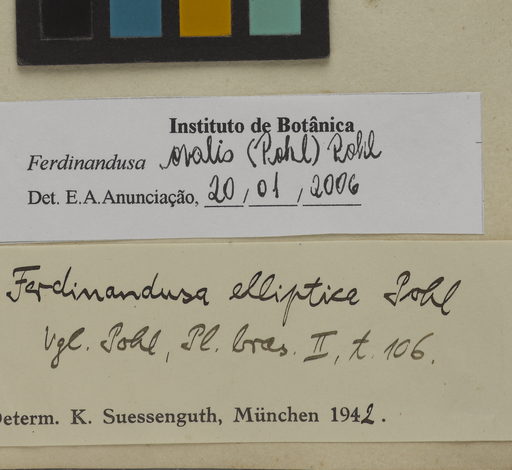 Instituto de Botânica
Ferdinandusa ovalis (Pohl) Pohl
Det. E.A.Anunciação, 20,01,2006
Ferdinandusa elliptica Pohl
Vgl. Pohl, Pl. bras. II, t. 106.
Determ. K. Suessenguth, München 1942.